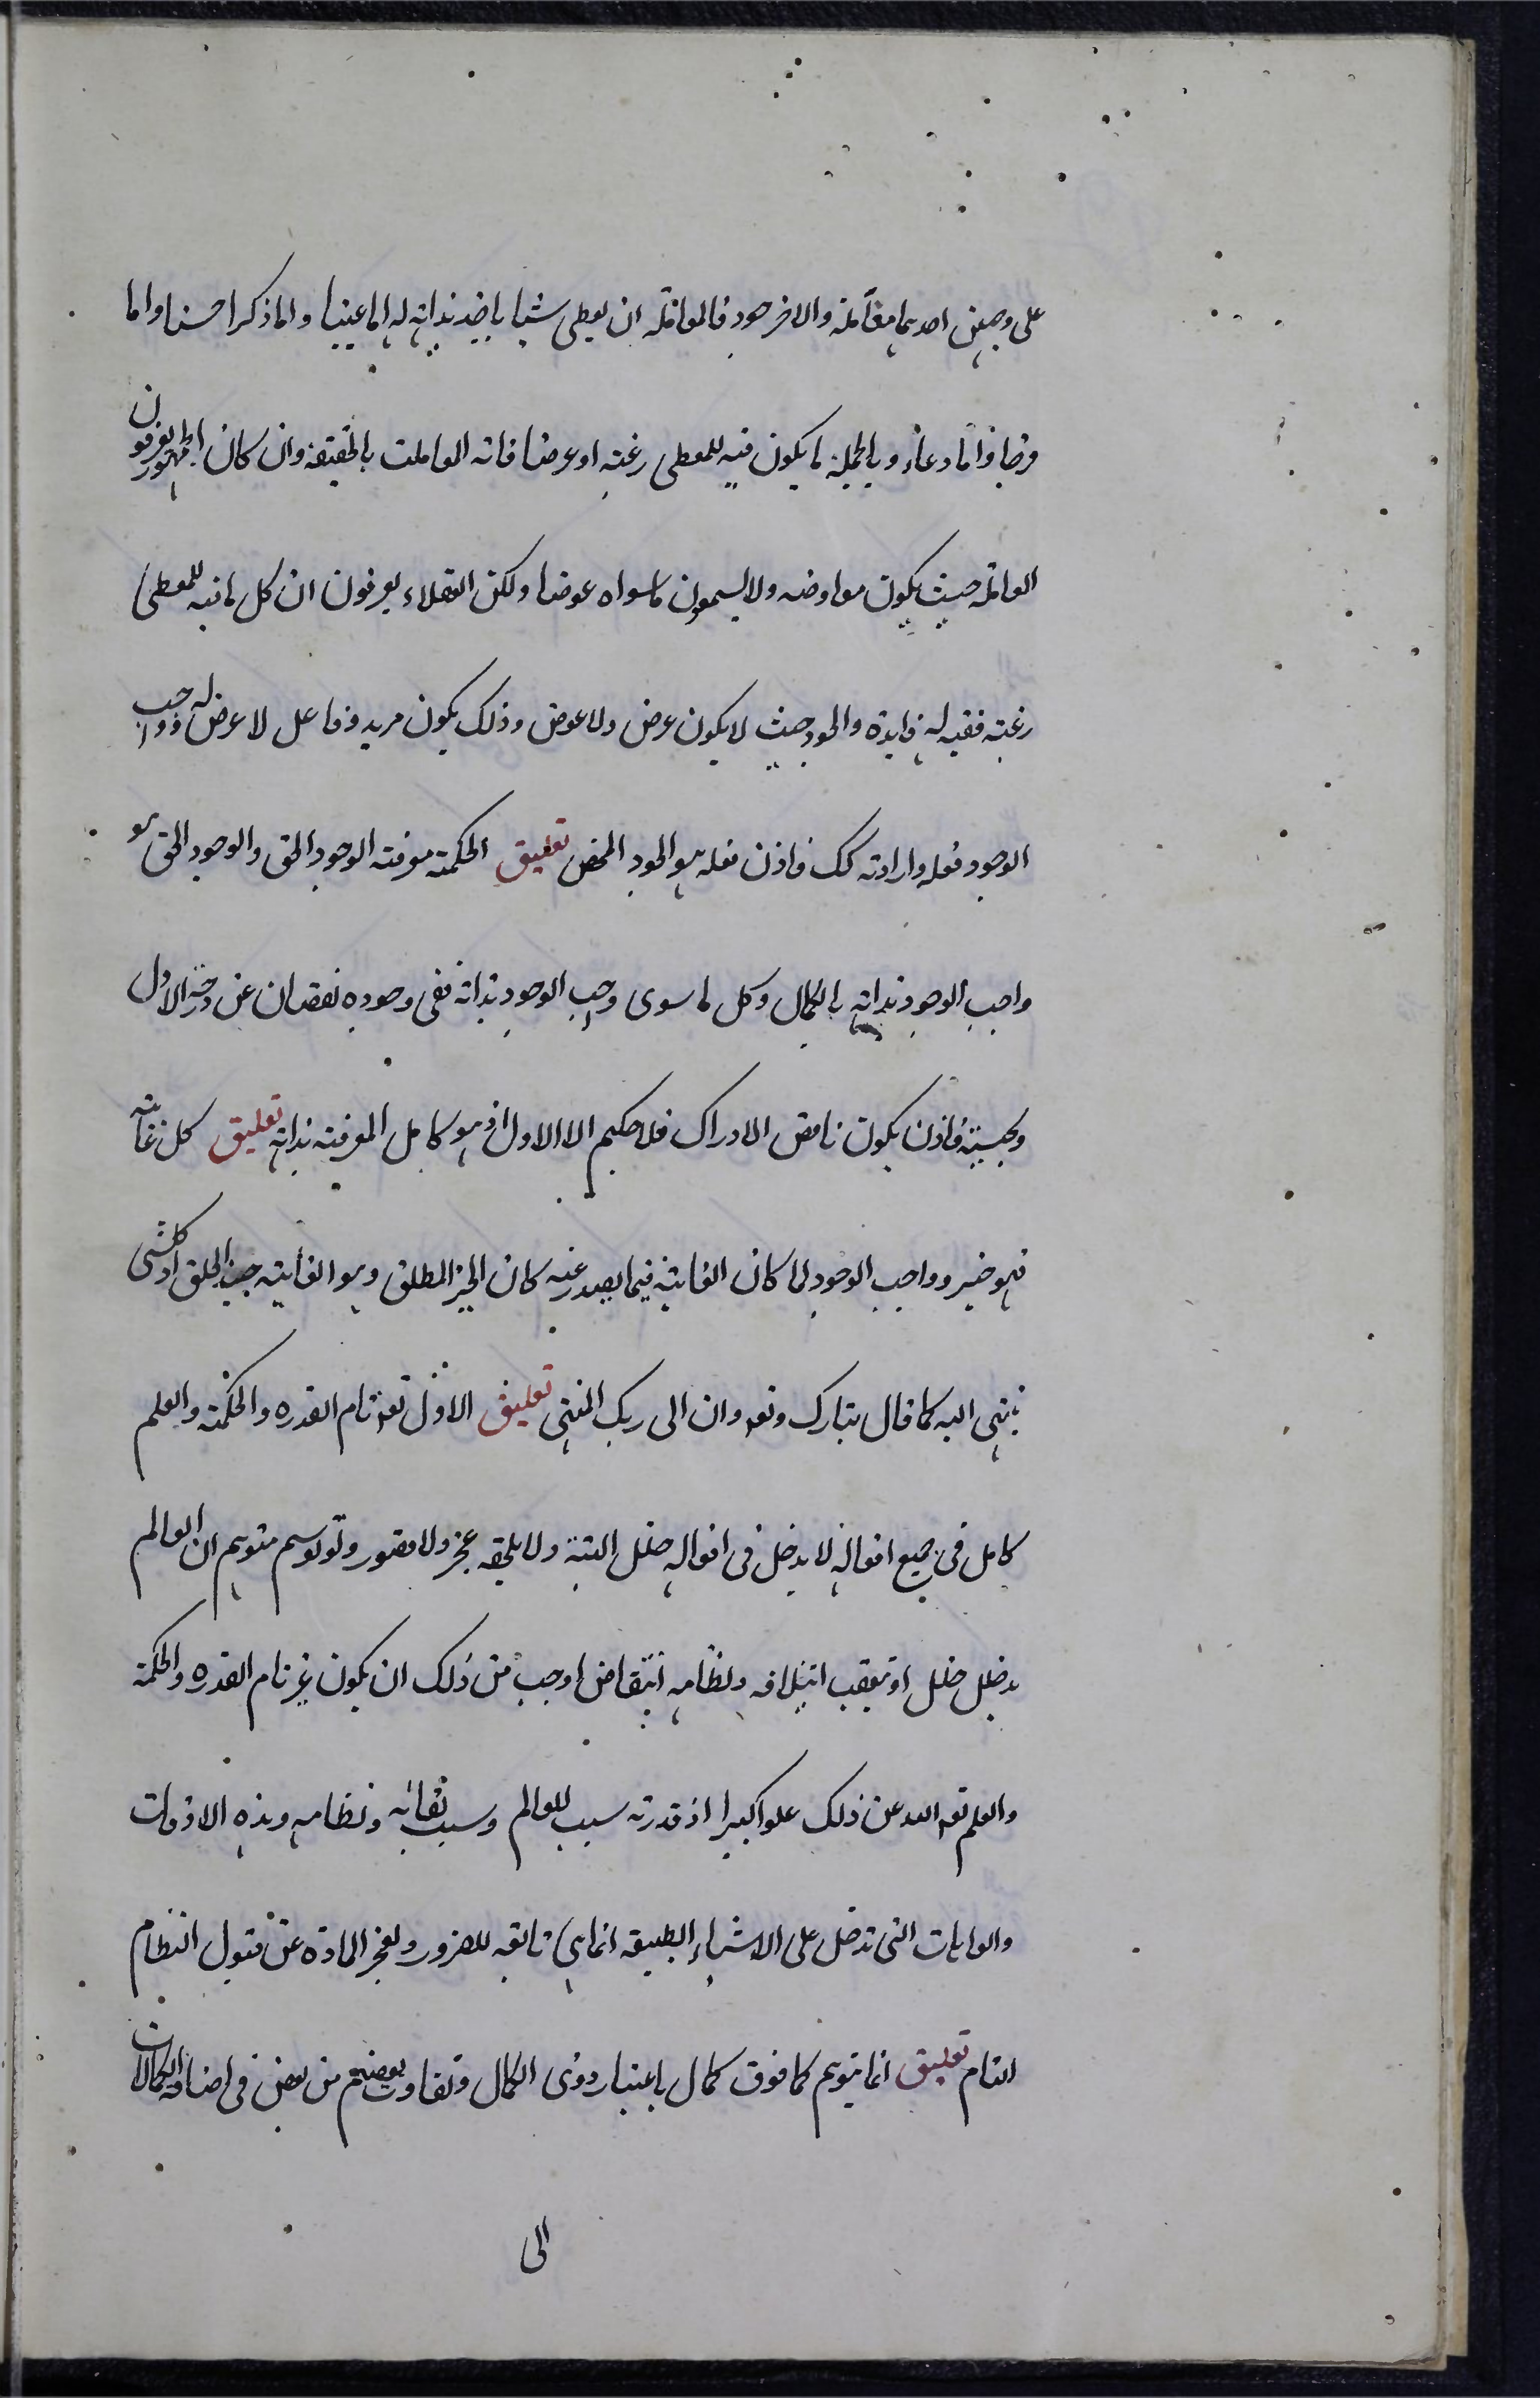 على وجهين احدهما معاملة والاخر جود فالمعاملة ان يعطى شيئا ياخذ بذاته له اما عينيا واما ذكرا حسنا واما
فرحا واما دعاء وبالجملة ما يكون فيه للمعطى رغبة او عرضا فانه المعاملت بالحقيقة وان كان الجمهور يعرفون
المعاملة حيث يكون معاوضه ولا يسمون ماسواه عوضا ولكن العقلاء يعرفون ان كل ما فيه للمعطى
رغبة ففيه له فايدة والجود حيث لا يكون عرض ولا عوض وذلك يكون مريد وفاعل لا عرض له وواجب
الوجود فعله وارادته كك فاذن فعله هو الجود المحض تعليق الحكمة معرفته الوجود الحق والوجود الحق هو
واجب الوجود بذاته بالكمال وكل ما سوى وجب الوجود بذاته ففى وجوده نقصان عن درجة الاول
وبحسبة فاذن يكون ناقص الادراك فلا حكيم الا الاول اذ هو كامل المعرفته بذاته تعليق كل غاية
فهو خير وواجب الوجود لما كان الغاية فيما يصدر عنه كان الخير المطلق وهو الغاية حيث الخلق اذ كلشى
ينتهى اليه كما قال تبارك وتعه وان الى ربك المنتهى تعليق الاول تعه تام القدره والحكمة والعلم
كامل فى جميع افعاله لا يدخل فى افعاله خلل البتة ولا يلحقه عجز ولا قصور ولو توهم متوهم ان العالم
يدخل خلل او تيعقب ائتلافه ونظامه انتقاض اوجب من ذلك ان يكون غير تام القدره والحكمة
والعلم تعه الله عن ذلك علوا كبيرا اذ قدرته سبب للعالم وسبب بقائه ونظامه وهذه الافات
والعاهات التى تدخل على الاشياء الطبيعه انما هى تابعه للضرور ولعجز المادة عن قبول النظام
التام تعليق انما يتوهم كما فوق كمال باعتبار ذوى الكمال وتفاوت بعضهم من بعض فى اضافه الكمالات
الى